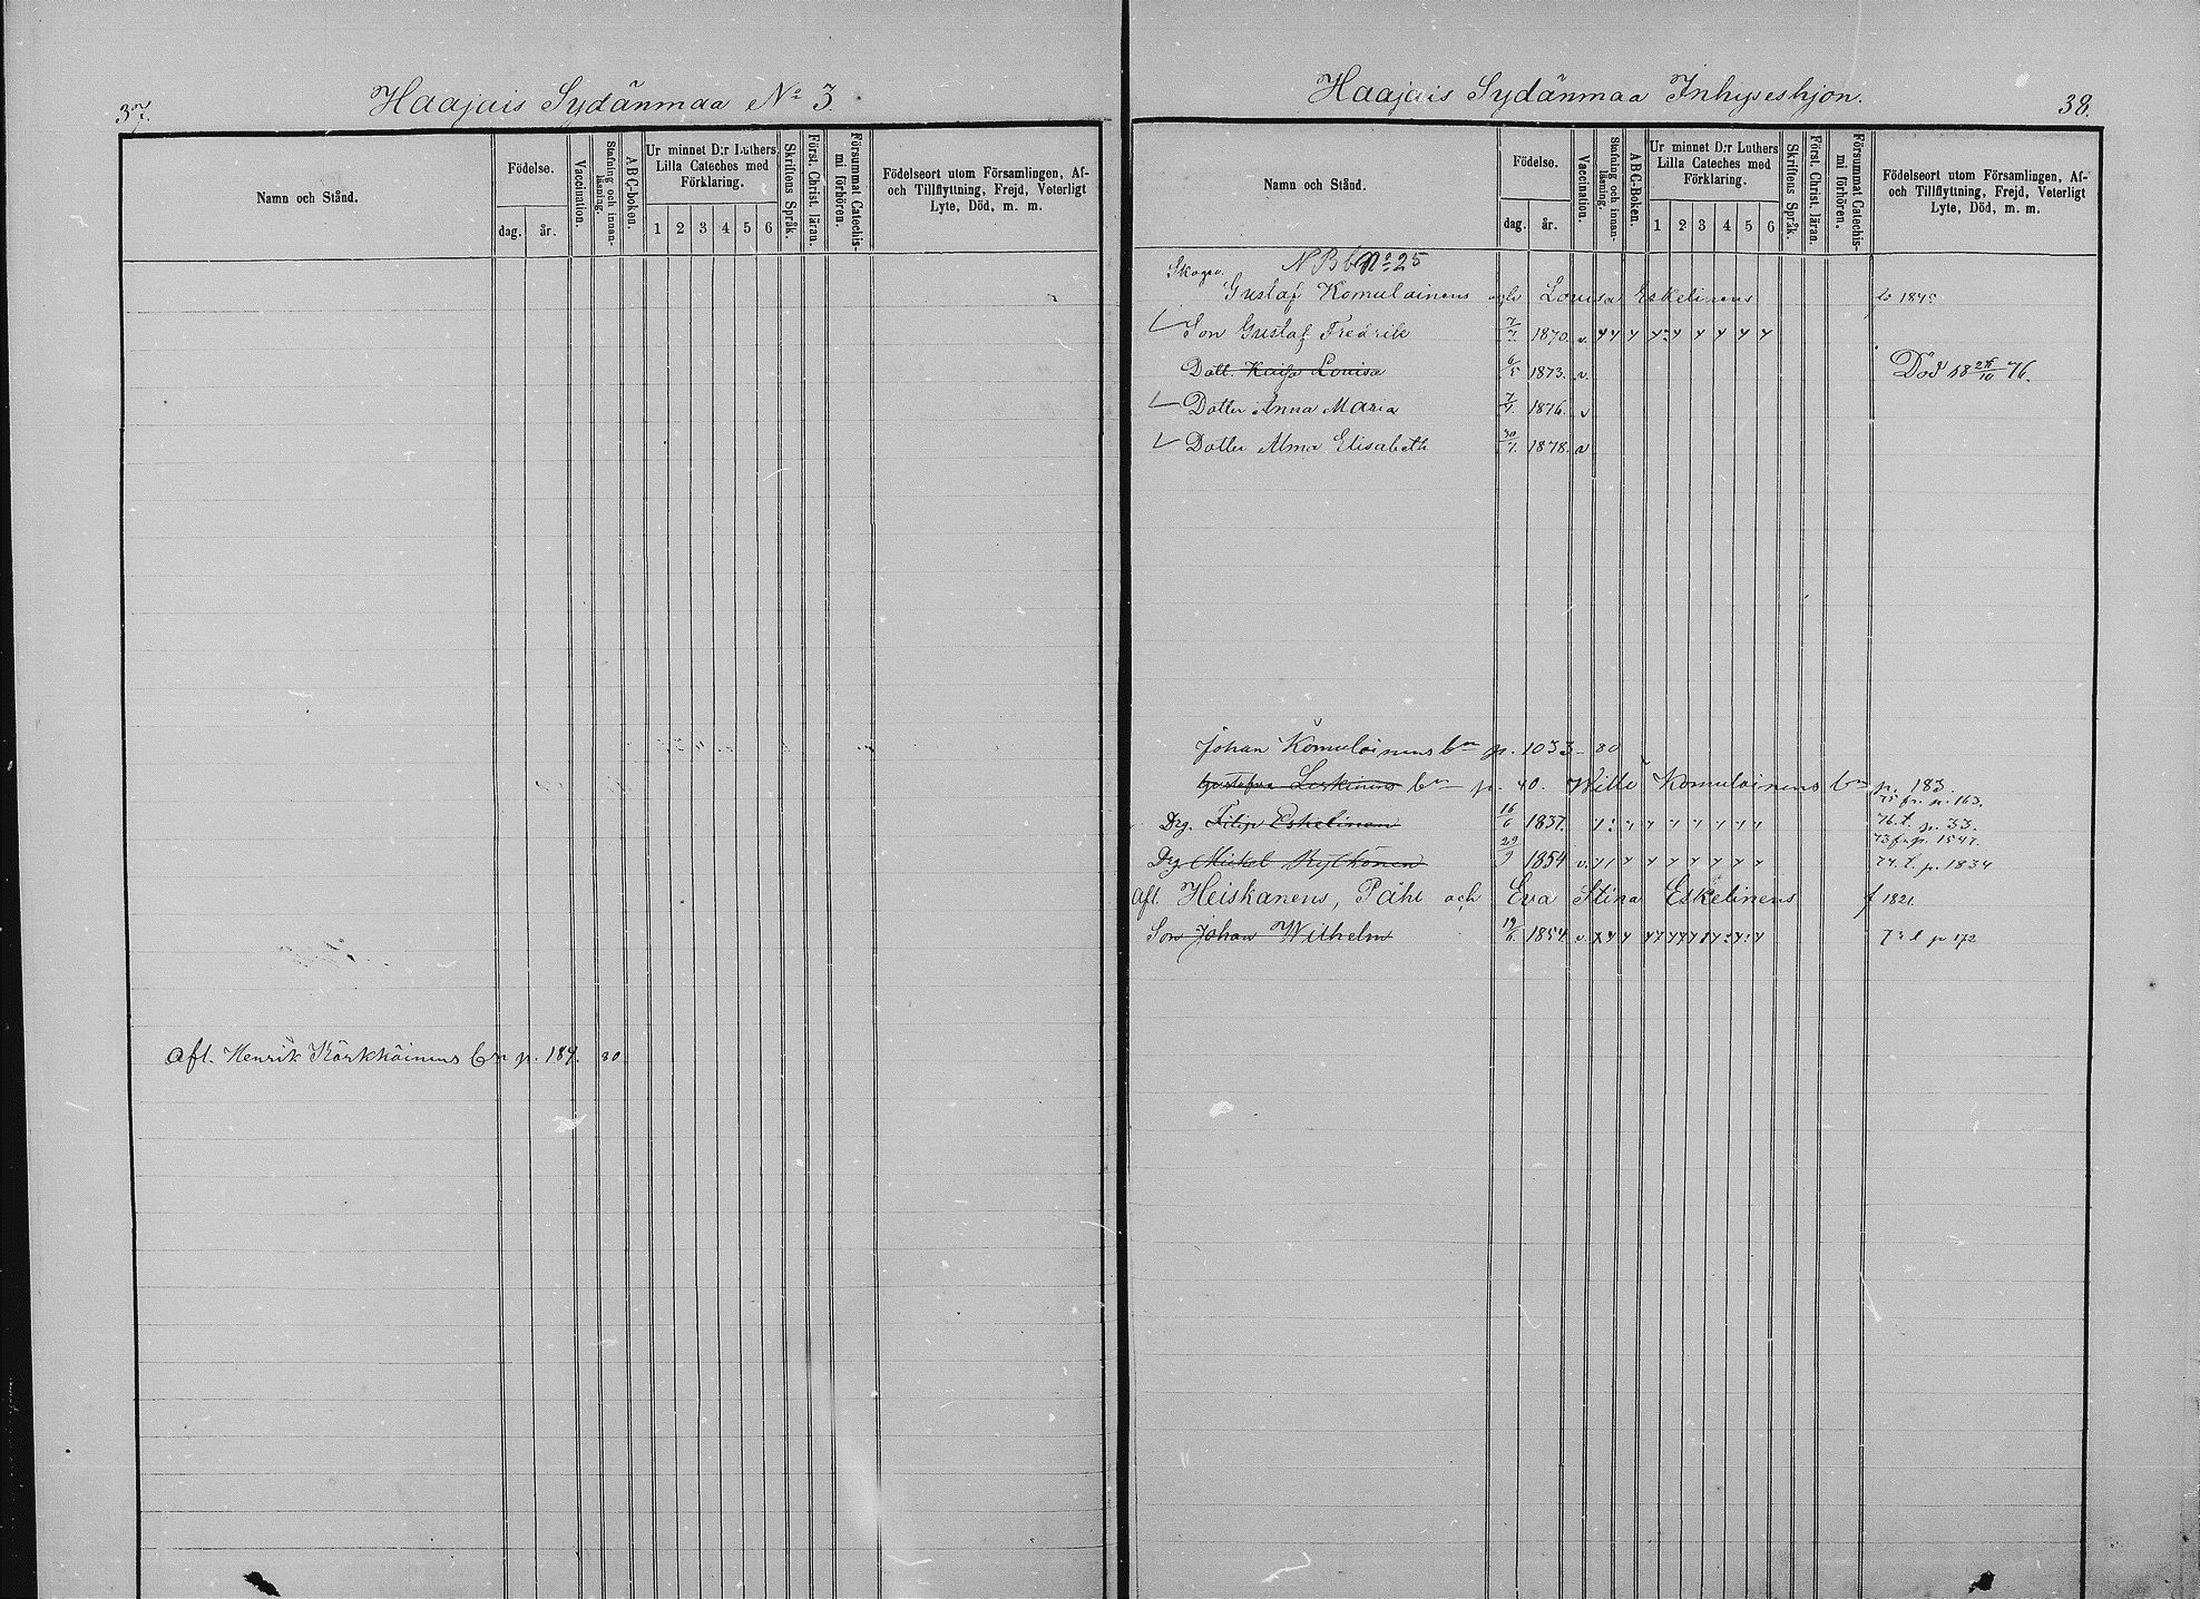 37.
Haajais Sydänmaa No 3.
Namn och Stånd.
Födelse.
dag.
år.
Vaccination.
Stafning och innan-
läsning.
ABC-boken.
Ur minnet D:r Luthers
Lilla Cateches med
Förklaring.
1 2 3 4 5 6
Skriftens Språk.
Först. Christ. läran.
Försummat Catechis-
mi förhören.
Födelseort utom Församlingen, Af-
och Tillflyttning, Frejd, Veterligt
Lyte, Död, m. m.
Afl. Henrik Kärkkäinens bn p. 189. 80
Haajais Sydänmaa Inhyseshjon.
38.
Namn och Stånd.
Födelse.
dag.
år.
Vaccination.
Stafning och innan-
läsning.
ABC-Boken.
Ur minnet D:r Luthers
Lilla Cateches med
Förklaring.
1 2 3 4 5 6
Skriftens Språk.
Först. Christ. läran.
Försummat Catechis-
mi förhören.
Födelseort utom Församlingen, Af-
och Tillflyttning, Frejd, Veterligt
Lyte, Död, m. m.
NB No 25
Gustaf Komulainens och Lovisa Eskelinens
Son Gustaf Fredrik 7/7 1870. v.
Dott. Kaisa Lovisa 6/5 1873. v. Död 18 26/10 76.
Dotter Anna Maria 1876. v
Dotter Alma Elisabeth 30/7. 1878. v
Johan Komulainens bn p. 1033 - 80
Leskinens bn p. 40. Wille Komulainens bn p. 183.
75 fr. p. 163.
Drg. Filip Eskelinen 16/6 1837. 76. t. p. 33.
73 fr. p. 1547.
Drg. Michel Rytkönen 29/9 1854 v. 74. t. p. 1834
Afl. Heiskanens, Påhl och Eva Stina Eskelinens f 1821.
Son Johan Wilhelm 19/6. 1854 v.